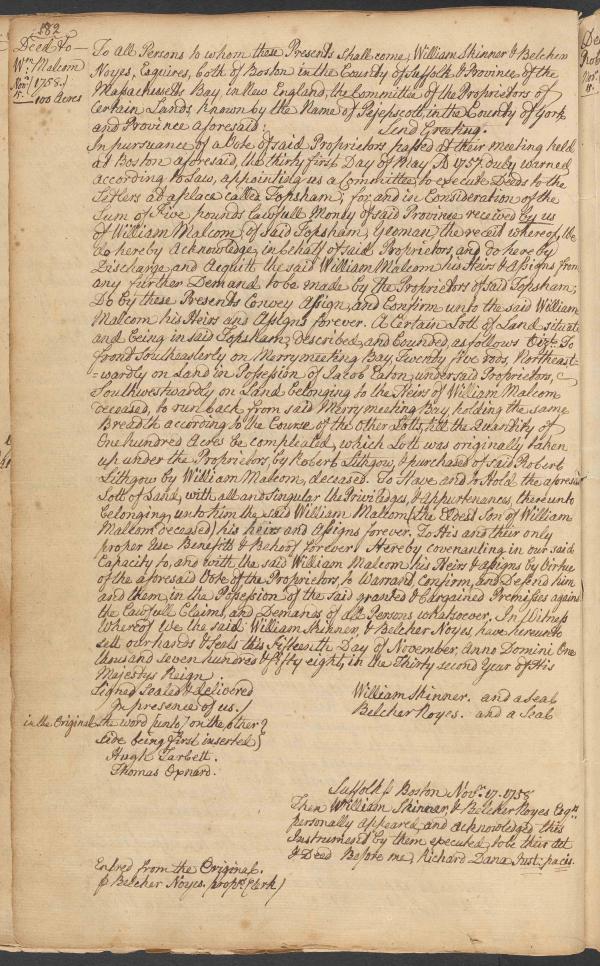 182
Deed to
Wm. Malcom
Novr. 15. 1758.
100 Acres
To all Persons to whom these Presents shall come, William Skinner & Belcher
Noyes, Esquires, both of Boston in the County of Suffolk & Province of the
Massachusetts Bay in New England, the Committee of the Proprietors of
Certain Lands, known by the Name of Pejepscott, in the County of York
and Province aforesaid: Send Greeting.
In pursuance of a Vote of said Proprietors passed at their Meeting held
at Boston aforesaid, the thirty first Day of May, A 1757, duly warned
according to Law, appointing us a Committee, to execute Deeds to the
Settlers at a place called Topsham; for, and in Consideration of the
Sum of Five pounds Lawfull Money of said Province received by us
of William Malcom, of said Topsham, Yeoman, the receit whereof, We
do hereby Acknowledge, in behalf of said Proprietors, and do hereby
Discharge and Acquitt the said William Malcom his Heirs & Assigns, from
any further Demand to be made by the Proprietors of said Topsham;
Do by these Presents Convey Assign, and Confirm unto the said William
Malcom his Heirs and Assigns forever. A Certain Lott of Land, situate
and being in said Topsham, described, and bounded, as follows Vizt. To
front Southeasterly on Merrymeeting Bay, Twenty five rods, Northeast-
=wardly on Land in Possession of Jacob Eaton, under said Proprietors, &
Southwestwardly on Land belonging to the Heirs of William Malcom
deceased, to run back from said Merrymeeting Bay, holding the same
Breadth according to the Course of the other Lotts, till the Quantity of
One hundred Acres be compleated, which Lott was originally taken
up under the Proprietors, by Robert Lithgow, & purchased of said Robert
Lithgow by William Malcom, deceased. To Have and to Hold the aforesaid
Lott of Land, with all and singular the Priviledges, & appurtenances, thereunto
belonging, unto him the said William Malcom (the Eldest Son of William
Malcom deceased) his heirs and Assigns forever. To His and their only
proper Use Benefitt & Behoof forever. Hereby covenanting in our said
Capacity to, and with the said William Malcom, his Heirs & assigns by Virtue
of the aforesaid Vote of the Proprietors, to Warrant, Confirm, and Defend him
and them, in the Possession of the said granted & bargained Premisses against
the Lawfull Claims, and Demands of all Persons whatsoever. In Witness
Whereof We the said William Skinner, & Belcher Noyes, have hereunto
sett our hands & Seals this Fifteenth Day of November, Anno Domini One
thousand seven hundred & fifty eight, in the Thirty second Year of His
Majestys Reign.
Signed Sealed & delivered
In presence of us.
William Skinner. and a Seal
Belcher Noyes. and a Seal
in the Original the word (unto) on the other
side being first inserted
Hugh Tarbett.
Thomas Oxnard.
Suffolk ss Boston Novr. 17. 1758
Then William Skinner, & Belcher Noyes Esqrs
personally appeared, and acknowledged this
Instrument by them executed, to be their Act
& Deed Before me, Richard Dana Just: pacis.
Entred from the Original.
p Belcher Noyes. proprs. Clerk